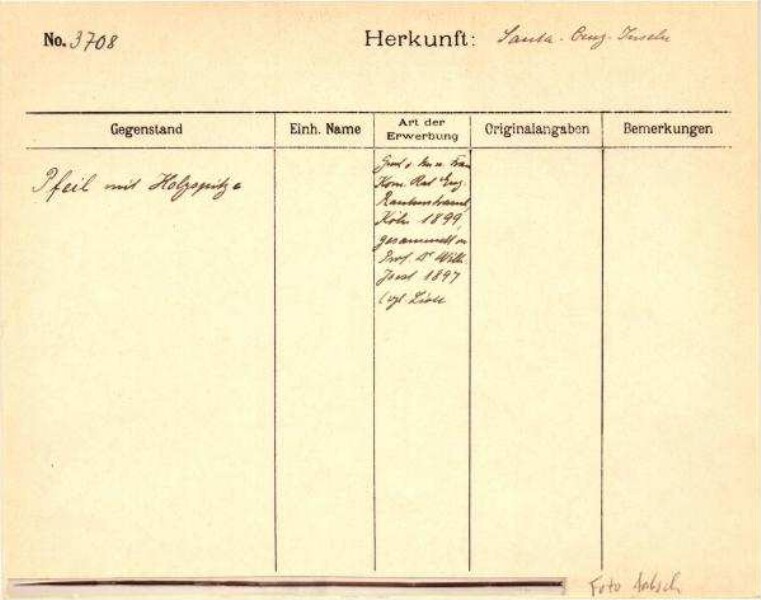 No. 3708
Herkunft: Santa-Cruz-Inseln
Gegenstand
Einh. Name
Art der Erwerbung
Originalangaben
Bemerkungen
Pfeil mit Holzspitze
Frau
Kom. Rat Eug.
Rautenstrauch,
Köln 1899,
gesammelt v.
Prof. Dr Wilh.
Joest 1897
(vgl. Liste
Foto